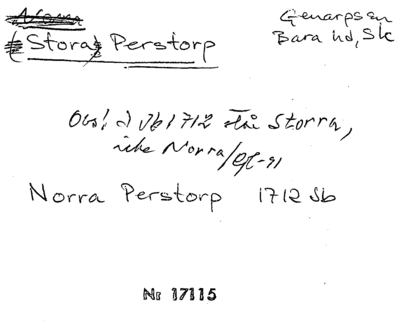 Norra
(Stora) Perstorp
Genarps sn
Bara hd, Sk
Obs! i Jb 1712 står Storra,
icke Norra/GE-91
Norra Perstorp 1712 Jb
Nr 17115